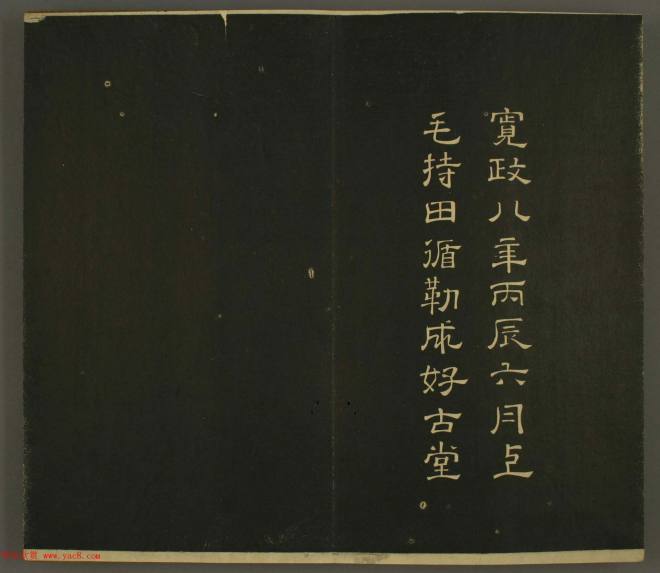 寛政八年丙辰六月上
毛持田循勒成好古堂
www.yac8.com